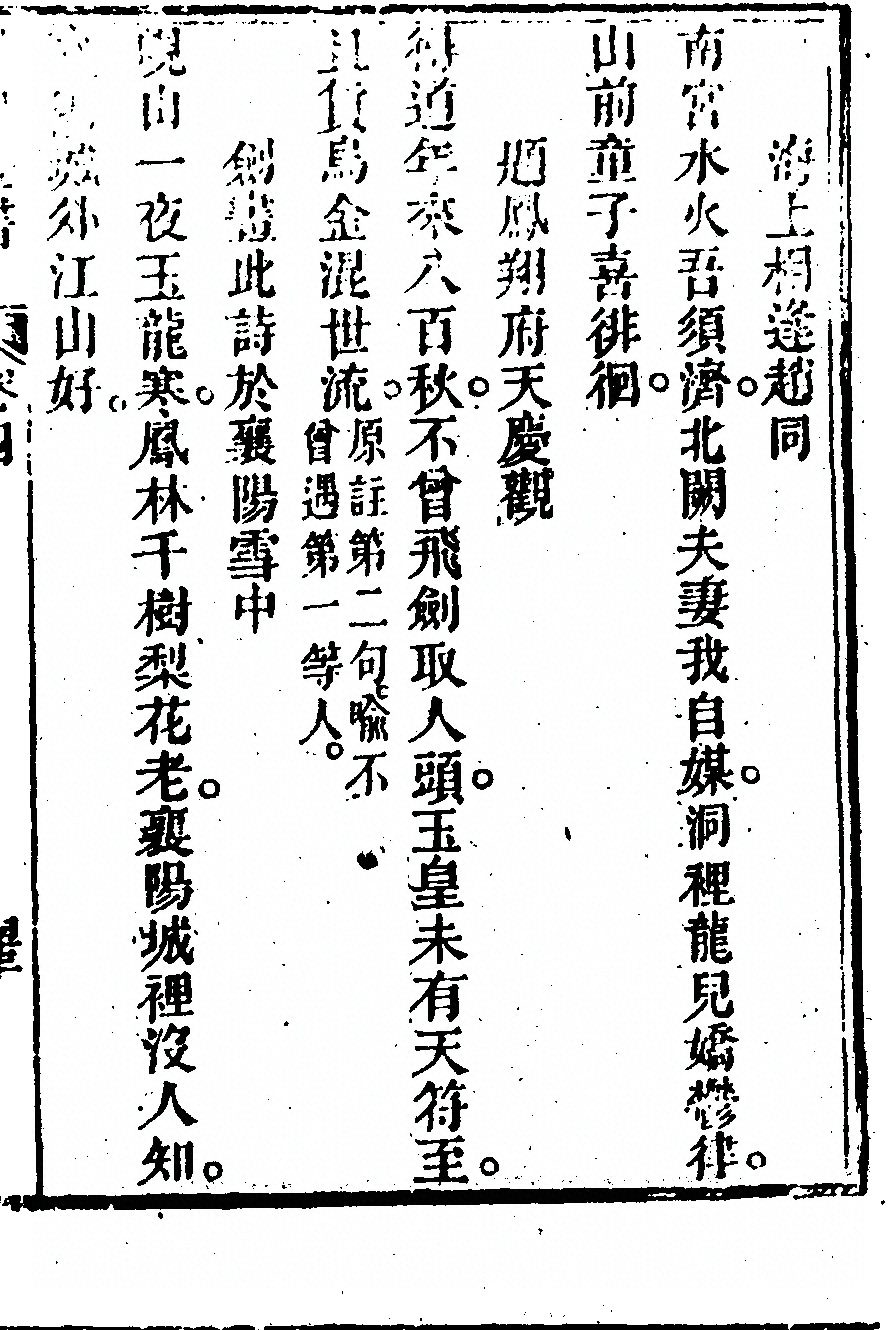 海上相逢趙同
南宮水火吾須濟。北闕夫妻我自媒。洞裡龍兒嬌鬱律。
山前童子喜徘徊。
題鳳翔府天慶觀
得道年來八百秋。不曾飛劍取人頭。玉皇未有天符至。
且貨烏金混世流。
原註第二句喻不
曾遇第一等人。
劍畫此詩於襄陽雪中
峴山一夜玉龍寒。鳳林千樹梨花老。襄陽城裡沒人知。
城外江山好。